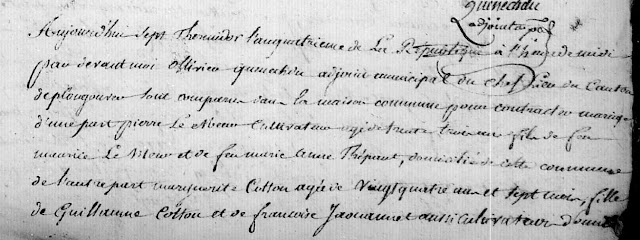 quenechdu
adjoint
Aujourd'hui sept Thermidor l'an quatrieme de La Republique a l'heure de midi
par devant moi Ollivier quenechdu adjoint municipal du chef Lieu du Canton
de plougourven sont comparu dans la maison commune pour contracter mariage
d'une part pierre Le Mear Cultivateur agé de trente trois ans fils de feu
maurice Le Mear et de feu marie anne Thépaut, domicilié de cette commune
de l'autre part marguerite Cosson agée de vingt quatre ans et sept mois, fille
de Guillaume Cosson et de francoise Jaouannet aussi cultivateurs